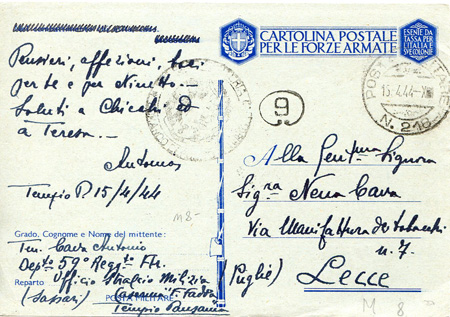 CARTOLINA POSTALE
PER LE FORZE ARMATE
ESENTE DA
TASSA PER
L'ITALIA E
SVE COLONIE
Pensieri, affezioni, baci
per te e per Ninetto —
Saluti a Chicchi ed
a Teresa. —
Antonio
Tempio P. 15/4/44
POSTA MILITARE
15.4.44-XII
N. 218
9
9
Alla Gent. Signora
Sig.ra Nena Cava
Via Manifattura dei Tabacchi
n. 7
(Puglie) Lecce
M 8-
Grado, Cognome e Nome del mittente:
Ten. Cava Antonio
Dep.to 59° Regg.to Ftr.
Reparto Ufficio Stralcio Milizia
(Sassari) Caserma "F. Fadda"
POSTA MILITARE
Tempio Pausania
M 8